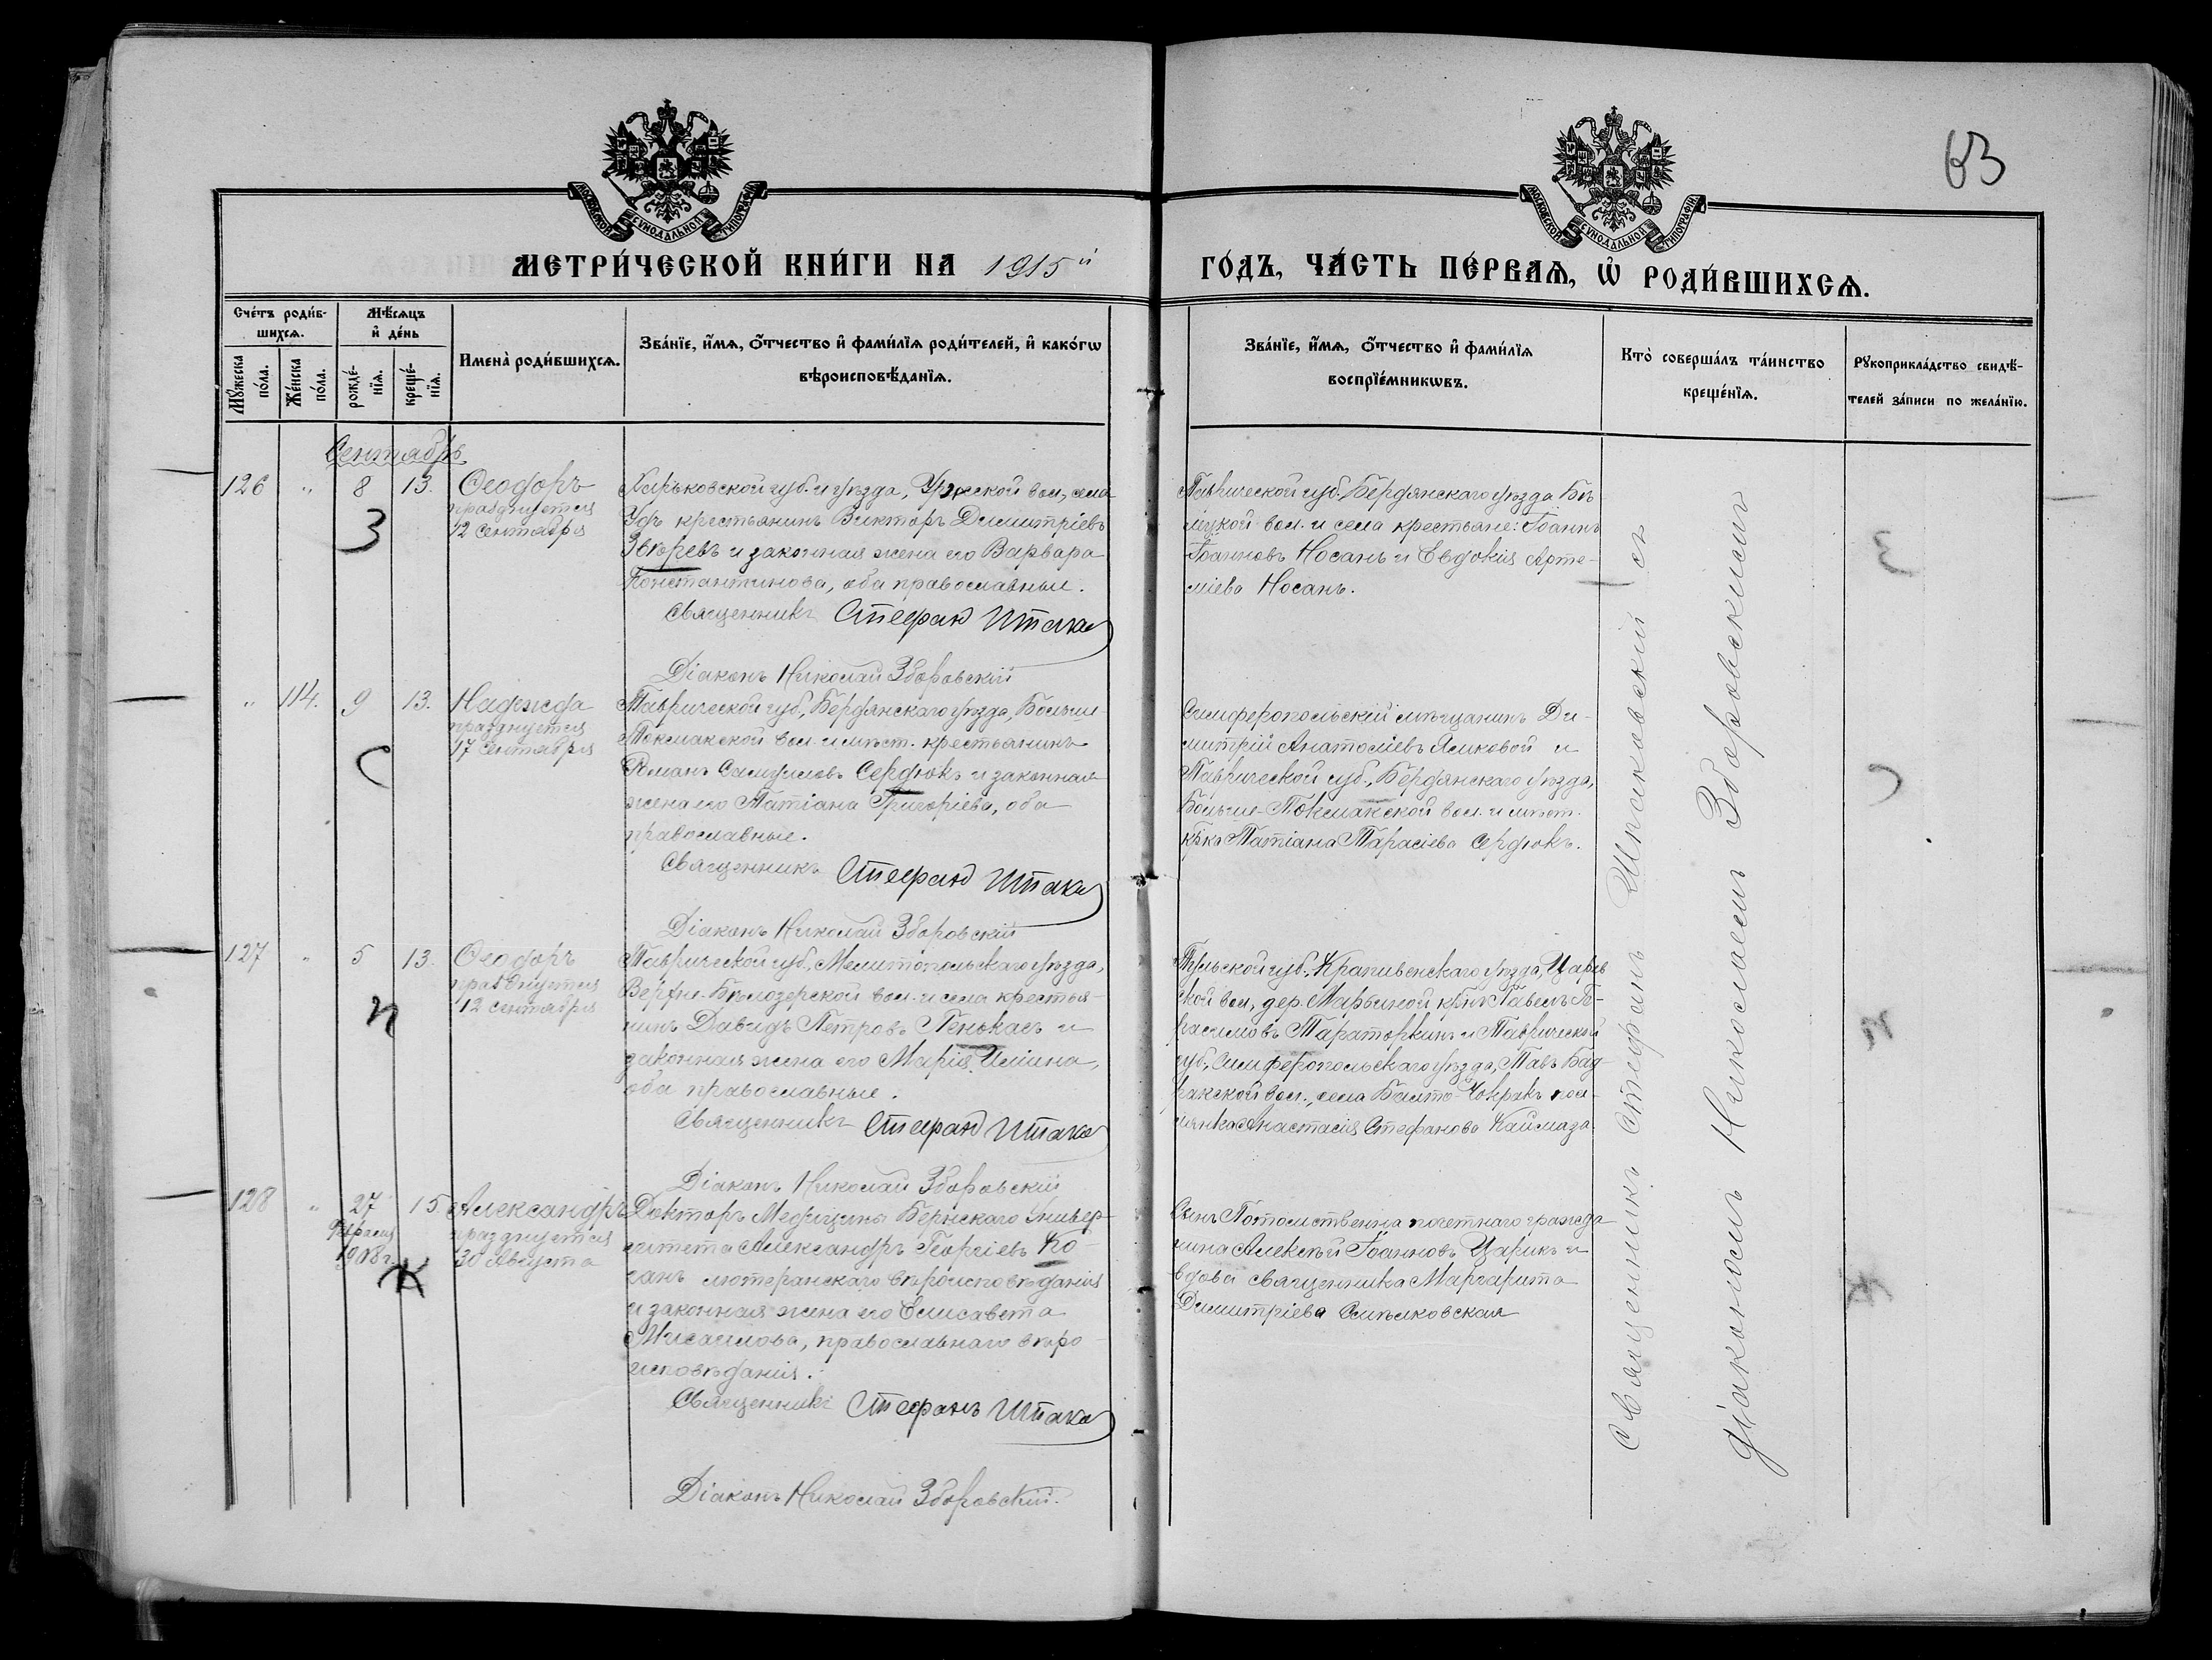 63
МОСКОВСКОЙ СѴНОДАЛЬНОЙ ТИПОГРАФІИ
МОСКОВСКОЙ СѴНОДАЛЬНОЙ ТИПОГРАФІИ
МЕТРИ́ЧЕСКОЙ КНИ́ГИ НА 1915й
ГО́ДЪ, ЧА́СТЬ ПЕ́РВАѦ, Ѡ҆ РОДИ́ВШИХСѦ.
Сче́тъ роди́в-
шихсѧ.
Мѣ́сѧцъ
и҆ де́нь
Мꙋ́жеска
по́ла.
Же́нска
по́ла.
рожде́-
нїѧ.
креще́-
нїѧ.
Имена̀ роди́вшихсѧ.
Зва́нїе, и҆́мѧ, ѻ҆́тчество и҆ фами́лїѧ роди́телей, и҆ како́гѡ
вѣроисповѣ́данїѧ.
Зва́нїе, и҆́мѧ, ѻ҆́тчество и҆ фами́лїѧ
воспрїе́мникѡвъ.
Кто̀ соверша́лъ та́инство
креще́нїѧ.
Рꙋкоприкла́дство свидѣ́-
телей за́писи по жела́нїю.
Сентябрь
126 " 8 13. Ѳеодоръ
празднуется
12 Сентября
З
Харьковской губ. и уѣзда, Удской вол., села
Удъ крестьянинъ Викторъ Димитріевъ
Звѣревъ и законная жена его Варвара
Константинова, оба православные.
Священникъ Стефан Шпака
Діаконъ Николай Зборовскій
Таврической губ. Бердянскаго уѣзда Бѣ-
лецкой вол. и села крестьяне: Іоаннъ
Іоанновъ Носань и Евдокія Арте-
міева Носань.
" 114. 9 13. Надежда
празднуется
17 Сентября
С
Таврической губ., Бердянскаго уѣзда, Больше-
Токмакской вол. и мѣст. крестьянинъ
Романъ Самуиловъ Сердюкъ и законная
жена его Татіана Григоріева, оба
православные.
Священникъ Стефан Шпака
Діаконъ Николай Зборовскій
Симферопольскій мѣщанинъ Ди-
митрій Анатоліевъ Ясиковой и
Таврической губ., Бердянскаго уѣзда,
Больше-Токмакской вол. и мѣст.
кр̃ка Татіана Тарасіева Сердюкъ.
127 " 5 13. Ѳеодоръ
празднуется
12 сентября
П
Таврической губ., Мелитопольскаго уѣзда,
Верхне-Бѣлозерской вол. и села крестья-
нинъ Давидъ Петровъ Пенькасъ и
законная жена его Марія Ильина,
оба православные.
Священникъ Стефан Шпака
Діаконъ Николай Зборовскій
Тульской губ. Крапивенскаго уѣзда, Царев
ской вол., дер. Марьиной кр̃нъ Павелъ Ге-
расимовъ Тараторкинъ и Таврической
губ., Симферопольскаго уѣзда, Тавъ Бад-
ракской вол., села Балто-Чокракъ посе-
лянка Анастасія Стефанова Каймаза.
128 " 27 15. Александръ
Февраля
1908 г.
празднуется
30 Августа
К
Докторъ Медицины Бернскаго Универ-
ситета Александръ Георгіевъ Ко-
ганъ лютеранскаго вѣроисповѣданія
и законная жена его Елисавета
Мисаилова, православнаго вѣро-
исповѣданія.
Священникъ Стефанъ Шпака
Діаконъ Николай Зборовскій.
Сынъ Потомственна почетнаго гражда-
нина Алексѣй Іоанновъ Царикъ и
вдова священника Маргарита
Димитріева Синьковская
Священникъ Стефанъ Шпаковскій съ
діакономъ Николаемъ Зборовскимъ